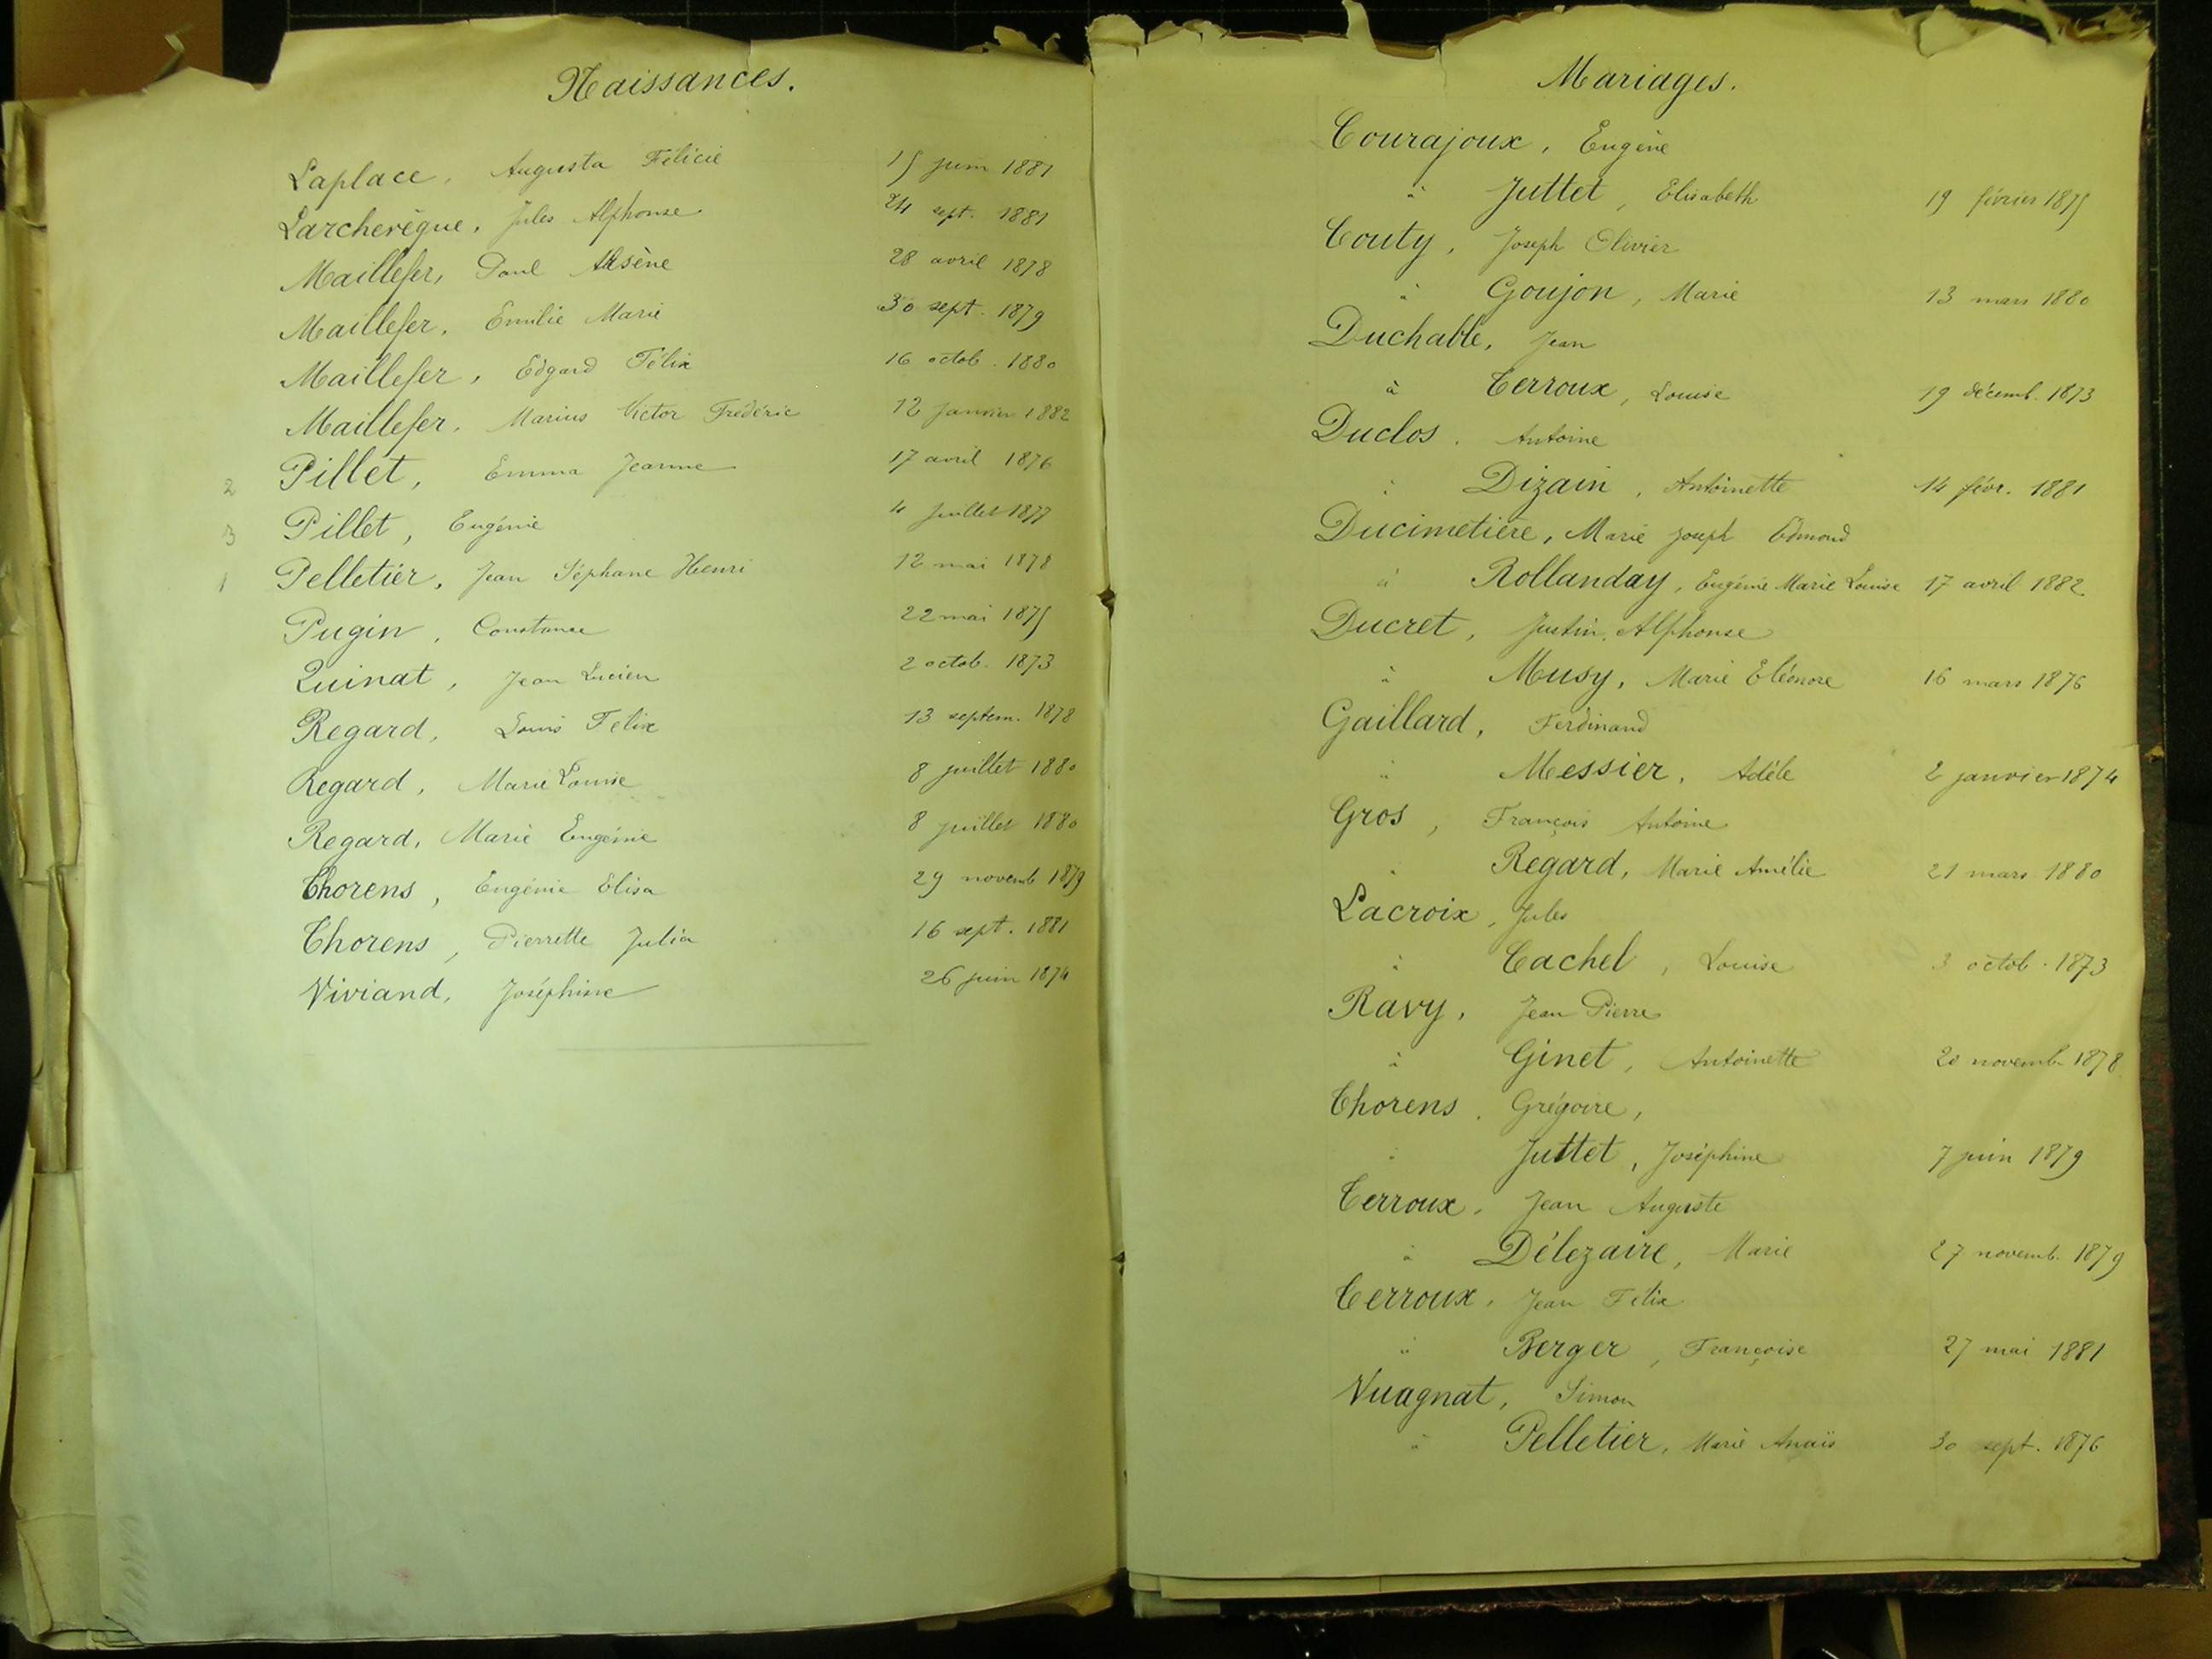 Naissances.
Laplace, Augusta Félicie 15 juin 1881
Larchevêque, Jules Alphonse 24 sept. 1881
Maillefer, Paul Arsène 28 avril 1878
Maillefer, Emilie Marie 30 sept. 1879
Maillefer, Edgard Félix 16 octob. 1880
Maillefer, Marius Victor Frédéric 12 janvier 1882
2 Pillet, Emma Jeanne 17 avril 1876
3 Pillet, Eugénie 4 juillet 1877
1 Pelletier, Jean Stéphane Henri 12 mai 1878
Pugin, Constance 22 mai 1875
Quinat, Jean Lucien 2 octob. 1873
Regard, Louis Felix 13 septem. 1878
Regard, Marie Louise 8 juillet 1880
Regard, Marie Eugénie 8 juillet 1880
Thorens, Eugénie Elisa 29 novemb 1879
Thorens, Pierrette Julia 16 sept. 1881
Viviand, Joséphine 26 juin 1874
Mariages.
Courajoux, Eugène
à Juttet, Elisabeth 19 février 1875
Couty, Joseph Olivier
à Goujon, Marie 13 mars 1880
Duchable, Jean
à Terroux, Louise 19 décemb. 1873
Duclos, Antoine
à Dizain, Antoinette 14 févr. 1881
Ducimetière, Marie Joseph Edmond
à Rollanday, Eugénie Marie Louise 17 avril 1882
Ducret, Justin Alphonse
à Musy, Marie Eléonore 16 mars 1876
Gaillard, Ferdinand
à Messier, Adèle 2 janvier 1874
Gros, François Antoine
à Regard, Marie Amélie 21 mars 1880
Lacroix, Jules
à Cachel, Louise 3 octob. 1873
Ravy, Jean Pierre
à Ginet, Antoinette 20 novemb. 1878
Thorens, Grégoire,
à Juttet, Joséphine 7 juin 1879
Terroux, Jean Auguste
à Délezaire, Marie 27 novemb. 1879
Terroux, Jean Felix
à Berger, Françoise 27 mai 1881
Vuagnat, Simon
à Pelletier, Marie Anaïs 30 sept. 1876